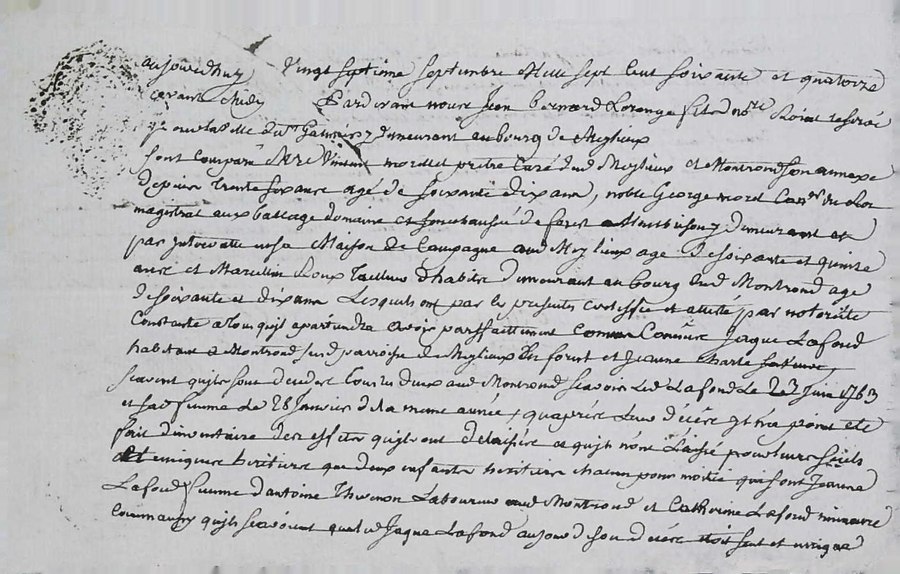 aujourdhuy vingt septieme septembre Mille sept Cent soixante et quatorze
avant midy Pardevant nous Jean bernard Lorange fils no.re Roial reservé
demeurant au bourg de Meylieux
sont Comparu M.re Vincent mollet pretre Curé dud Meylieux et Montrond son annexe
depuis trente six ans agé de soixante dix ans, noble George morel Con.er du Roi
magistrat aux balliage domaine et senechaussé de forest a Montbrison y demeurant et
par Intervalle en sa Maison de Campagne aud Meylieux agé De soixante et quinze
ans et Marcellin Roux Tailleur d'habits demeurant au bourg dud Montrond agé
de soixante et dix ans Lesquels ont par les presentes certiffié et attesté par notoriété
Constante a tous quil apartiendra avoir parfaittement Connu Jaque Lafond
habitant a Montrond parroisse de Meylieux En forest et Jeanne sa femme,
scavoir quils sont decedes tous les deux aud Montrond scavoir Led Lafond Le 23 Juin 1763
et sad femme Le 28 Janvier de La meme année, quaprés Leur décés il n'a point eté
fait d'inventaire des effets quils ont delaissé et quils n'ont Laissé pour leurs seuls
et uniques heritiers que deux enfants heritiers chacun pour moitié qui sont Jeanne
Lafond femme d'antoine Thevenon Laboureur aud Montrond et Catherine Lafond mineure
quils scavent que led Jaque Lafond au jour de son décés etoit seul et unique